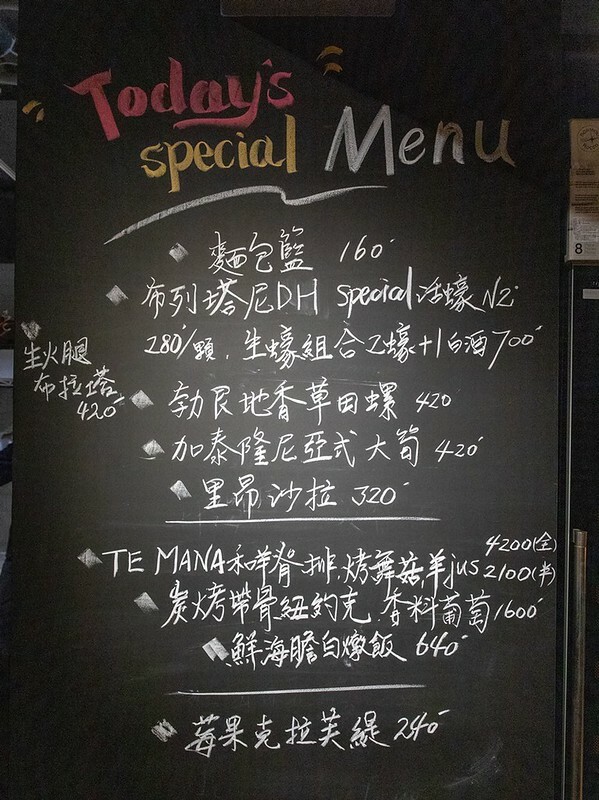 Today's
special Menu
麵包籃 160
布列塔尼DH special 活蠔 N2
280/顆, 生蠔組合 2蠔+1白酒 700
生火腿
布拉塔
420
勃艮地香草田螺 420
加泰隆尼亞式大筍 420
里昂沙拉 320
TE MANA 脊排, 烤舞菇, 羊jus 4200(全)
2100(半)
炭烤帶骨紐約克, 香料葡萄 1600
鮮海膽白燉飯 640
莓果克拉芙緹 240
8